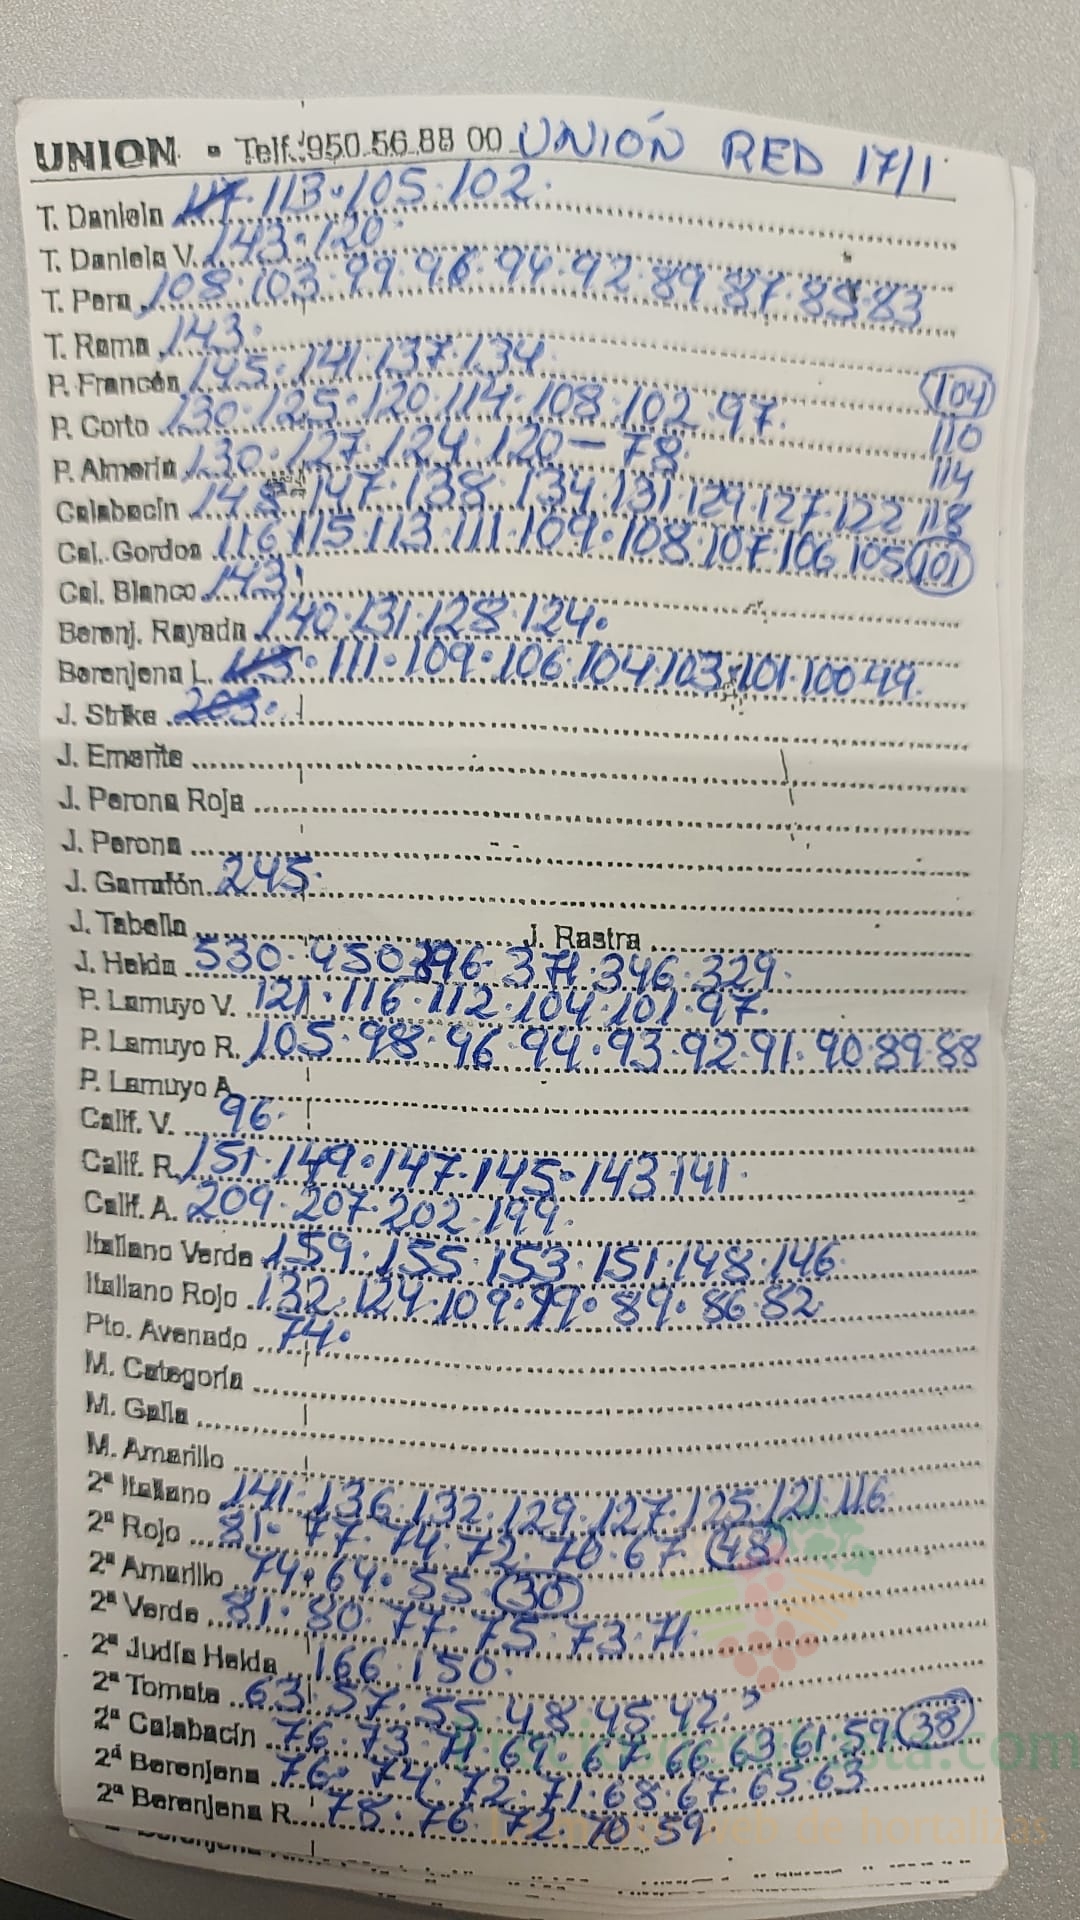 UNION - Telf.: 950 56 88 00 UNIÓN RED 17/1
T. Daniela 117. 113. 105. 102.
T. Daniela V. 143. 120.
T. Pera 108. 103. 99. 96. 94. 92. 89. 87. 85. 83
T. Rama 143.
P. Francés 145. 141. 137. 134
P. Corto 130. 125. 120. 114. 108. 102. 97. 104
P. Almería 130. 127. 124. 120 - 78. 110
114
Calabacín 148. 147. 138. 134. 131. 129. 127. 122 118
Cal. Gordos 116 115 113 111. 109. 108. 107. 106 105 101
Cal. Blanco 143.
Berenj. Rayada 140. 131. 128. 124.
Berenjena L. 113. 111. 109. 106. 104. 103. 101. 100 99.
J. Strike 203.
J. Emerite
J. Perona Roja
J. Perona
J. Garrafón 245.
J. Tabella J. Rastra
J. Helda 530. 450 396. 371. 346. 329.
P. Lamuyo V. 121. 116. 112. 104. 101. 97.
P. Lamuyo R. 105. 98. 96. 94. 93. 92. 91. 90. 89. 88
P. Lamuyo A.
Calif. V. 96.
Calif. R. 151. 149. 147. 145. 143 141.
Calif. A. 209. 207. 202. 199.
Italiano Verde 159. 155. 153. 151. 148. 146.
Italiano Rojo 132. 124. 109. 99. 89. 86. 82
Pto. Avenado 74.
M. Categoría
M. Galia
M. Amarillo
2ª Italiano 141. 136. 132. 129. 127. 125. 121. 116
2ª Rojo 81. 77. 74. 72. 70. 67. 48
2ª Amarillo 74. 64. 55. 30
2ª Verde 81. 80. 77. 75. 73. 71.
2ª Judía Helda 166. 150.
2ª Tomate 63. 57. 55. 48. 45. 42.
2ª Calabacín 76. 73. 71 69. 67. 66. 63 61. 59 38
2ª Berenjena 76. 74. 72. 71. 68. 67. 65. 63
2ª Berenjena R. 78. 76. 72. 70. 59
.com
web de hortalizas